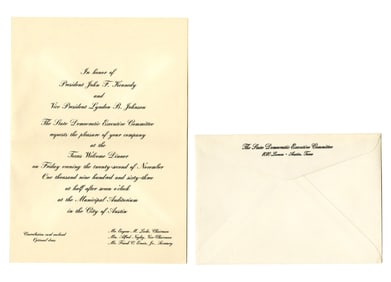 In honor of
President John F. Kennedy
and
Vice President Lyndon B. Johnson
The State Democratic Executive Committee
requests the pleasure of your company
at the
Texas Welcome Dinner
on Friday evening the twenty-second of November
One thousand nine hundred and sixty-three
at half after seven o'clock
at the Municipal Auditorium
in the City of Austin
Optional dress
Mr. Eugene M. Locke, Chairman
Mrs. Alfred Negley, Vice-Chairman
Mr. Frank C. Erwin, Jr., Secretary
The State Democratic Executive Committee
Austin, Texas